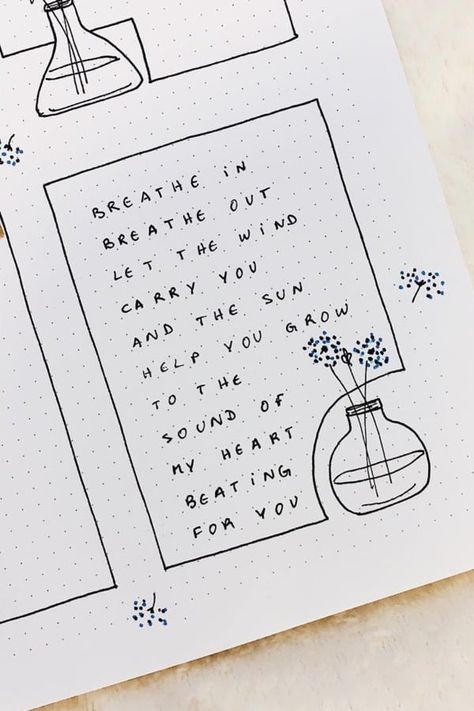 BREATHE iN
BREATHE OUT
LET THE WIND
CARRY YOU
AND THE SUN
HELP YOU GROW
TO THE
SOUND OF
MY HEART
BEATiNG
FOR YOU